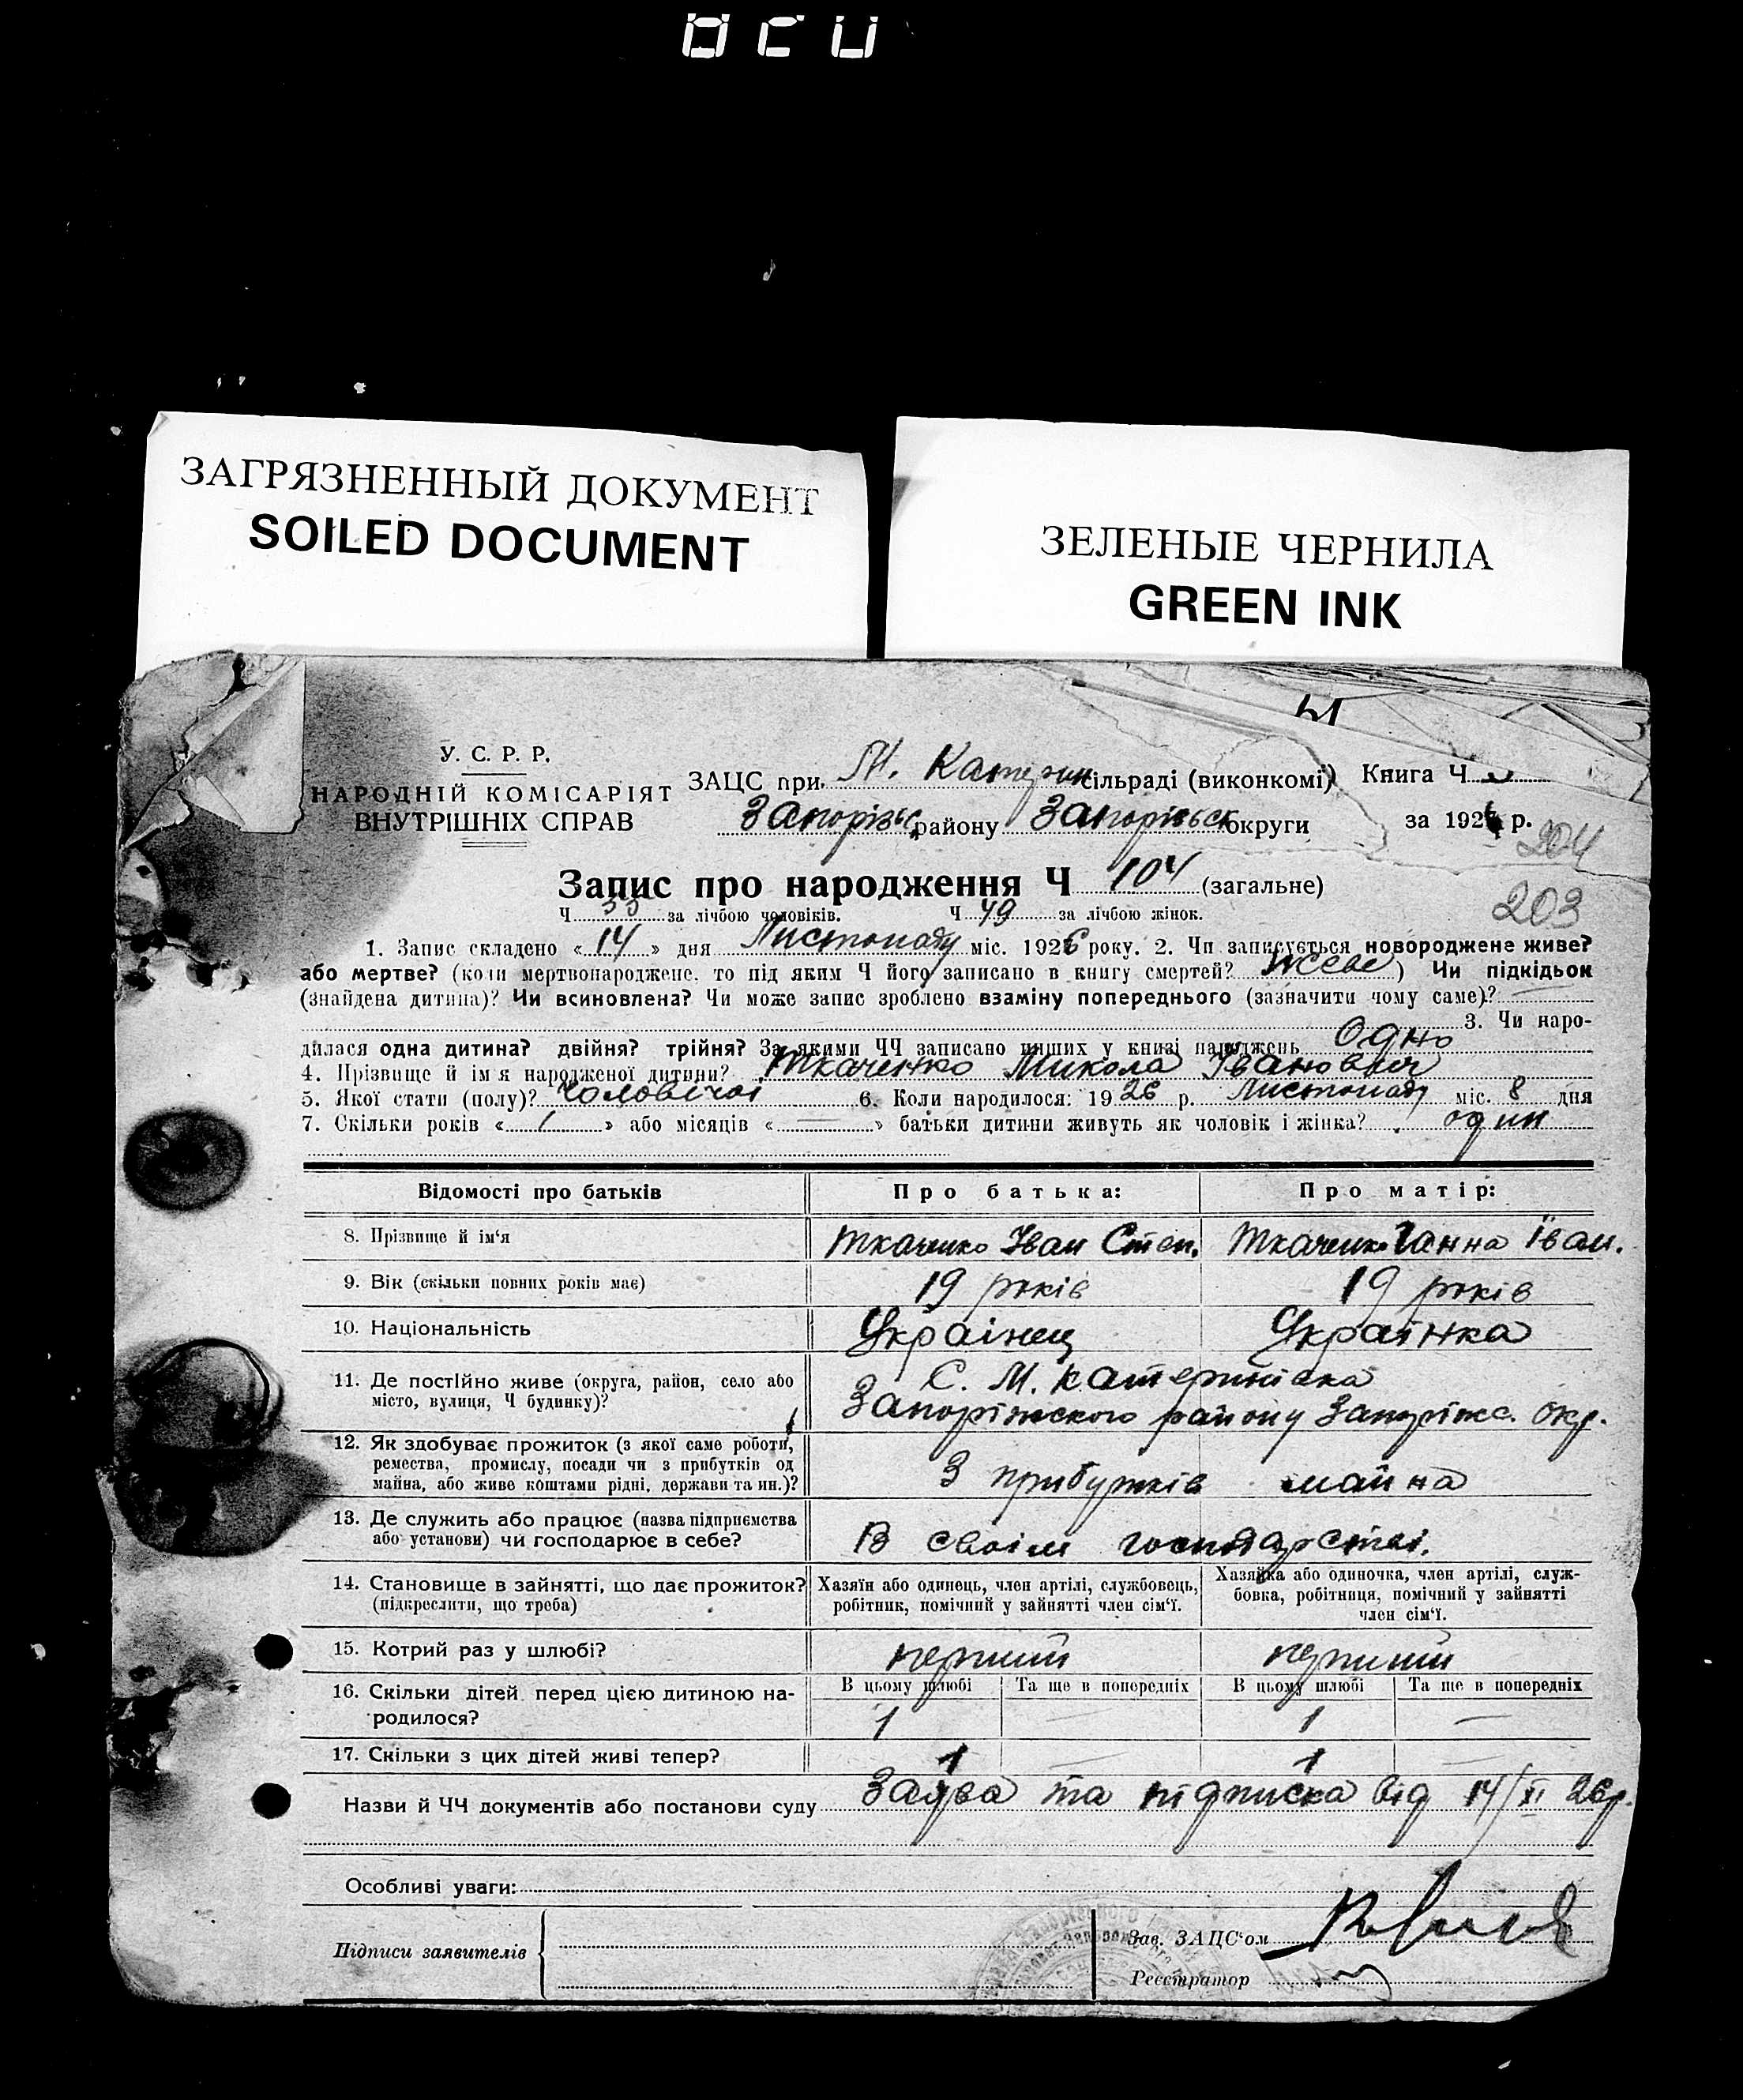 ЗАГРЯЗНЕННЫЙ ДОКУМЕНТ
SOILED DOCUMENT
ЗЕЛЕНЫЕ ЧЕРНИЛА
GREEN INK
У. С. Р. Р.
НАРОДНІЙ КОМІСАРІЯТ
ВНУТРІШНІХ СПРАВ
ЗАЦС при М. Катерин сільраді (виконкомі) Книга Ч
Запорізьс району Запорізьск округи за 1926 р.
204
Запис про народження Ч 104 (загальне)
203
Ч 55 за лічбою чоловіків. Ч 49 за лічбою жінок.
1. Запис складено «14» дня Листопаду міс. 1926 року. 2. Чи записується новороджене живе?
або мертве? (коли мертвонароджене, то під яким Ч його записано в книгу смертей? живе) Чи підкідьок
(знайдена дитина)? Чи всиновлена? Чи може запис зроблено взаміну попереднього (зазначити чому саме)?
3. Чи наро-
дилася одна дитина? двійня? трійня? За якими ЧЧ записано инших у книзі народжень Одно
4. Прізвище й ім'я народженої дитини? Ткаченко Микола Іванович
5. Якої стати (полу)? Чоловічої 6. Коли народилося: 1926 р. Листопаду міс. 8 дня
7. Скільки років «1» або місяців «—» батьки дитини живуть як чоловік і жінка? один
Відомості про батьків Про батька: Про матір:
8. Прізвище й ім'я Ткаченко Іван Степ. Ткаченко Ганна Іван.
9. Вік (скільки повних років має) 19 років 19 років
10. Національність Українец Українка
11. Де постійно живе (округа, район, село або
місто, вулиця, Ч будинку)?
С. М. Катеринівка
Запоріжского району Запоріжс. окр.
12. Як здобуває прожиток (з якої саме роботи,
ремества, промислу, посади чи з прибутків од
майна, або живе коштами рідні, держави та ин.)?
З прибутків майна
13. Де служить або працює (назва підприємства
або установи) чи господарює в себе?
В своїм господарстві.
14. Становище в зайнятті, що дає прожиток?
(підкреслити, що треба)
Хазяїн або одинець, член артілі, службовець,
робітник, помічний у зайнятті член сім'ї.
Хазяйка або одиночка, член артілі, служ-
бовка, робітниця, помічний у зайнятті
член сім'ї.
15. Котрий раз у шлюбі? перший перший
16. Скільки дітей перед цією дитиною на-
родилося?
В цьому шлюбі Та ще в попередніх В цьому шлюбі Та ще в попередніх
1 — 1 —
17. Скільки з цих дітей живі тепер? 1 — 1 —
Назви й ЧЧ документів або постанови суду Заява та підписка від 14/XI 26р.
Особливі уваги:
Підписи заявителів
Зав. ЗАЦС'ом
Реєстратор